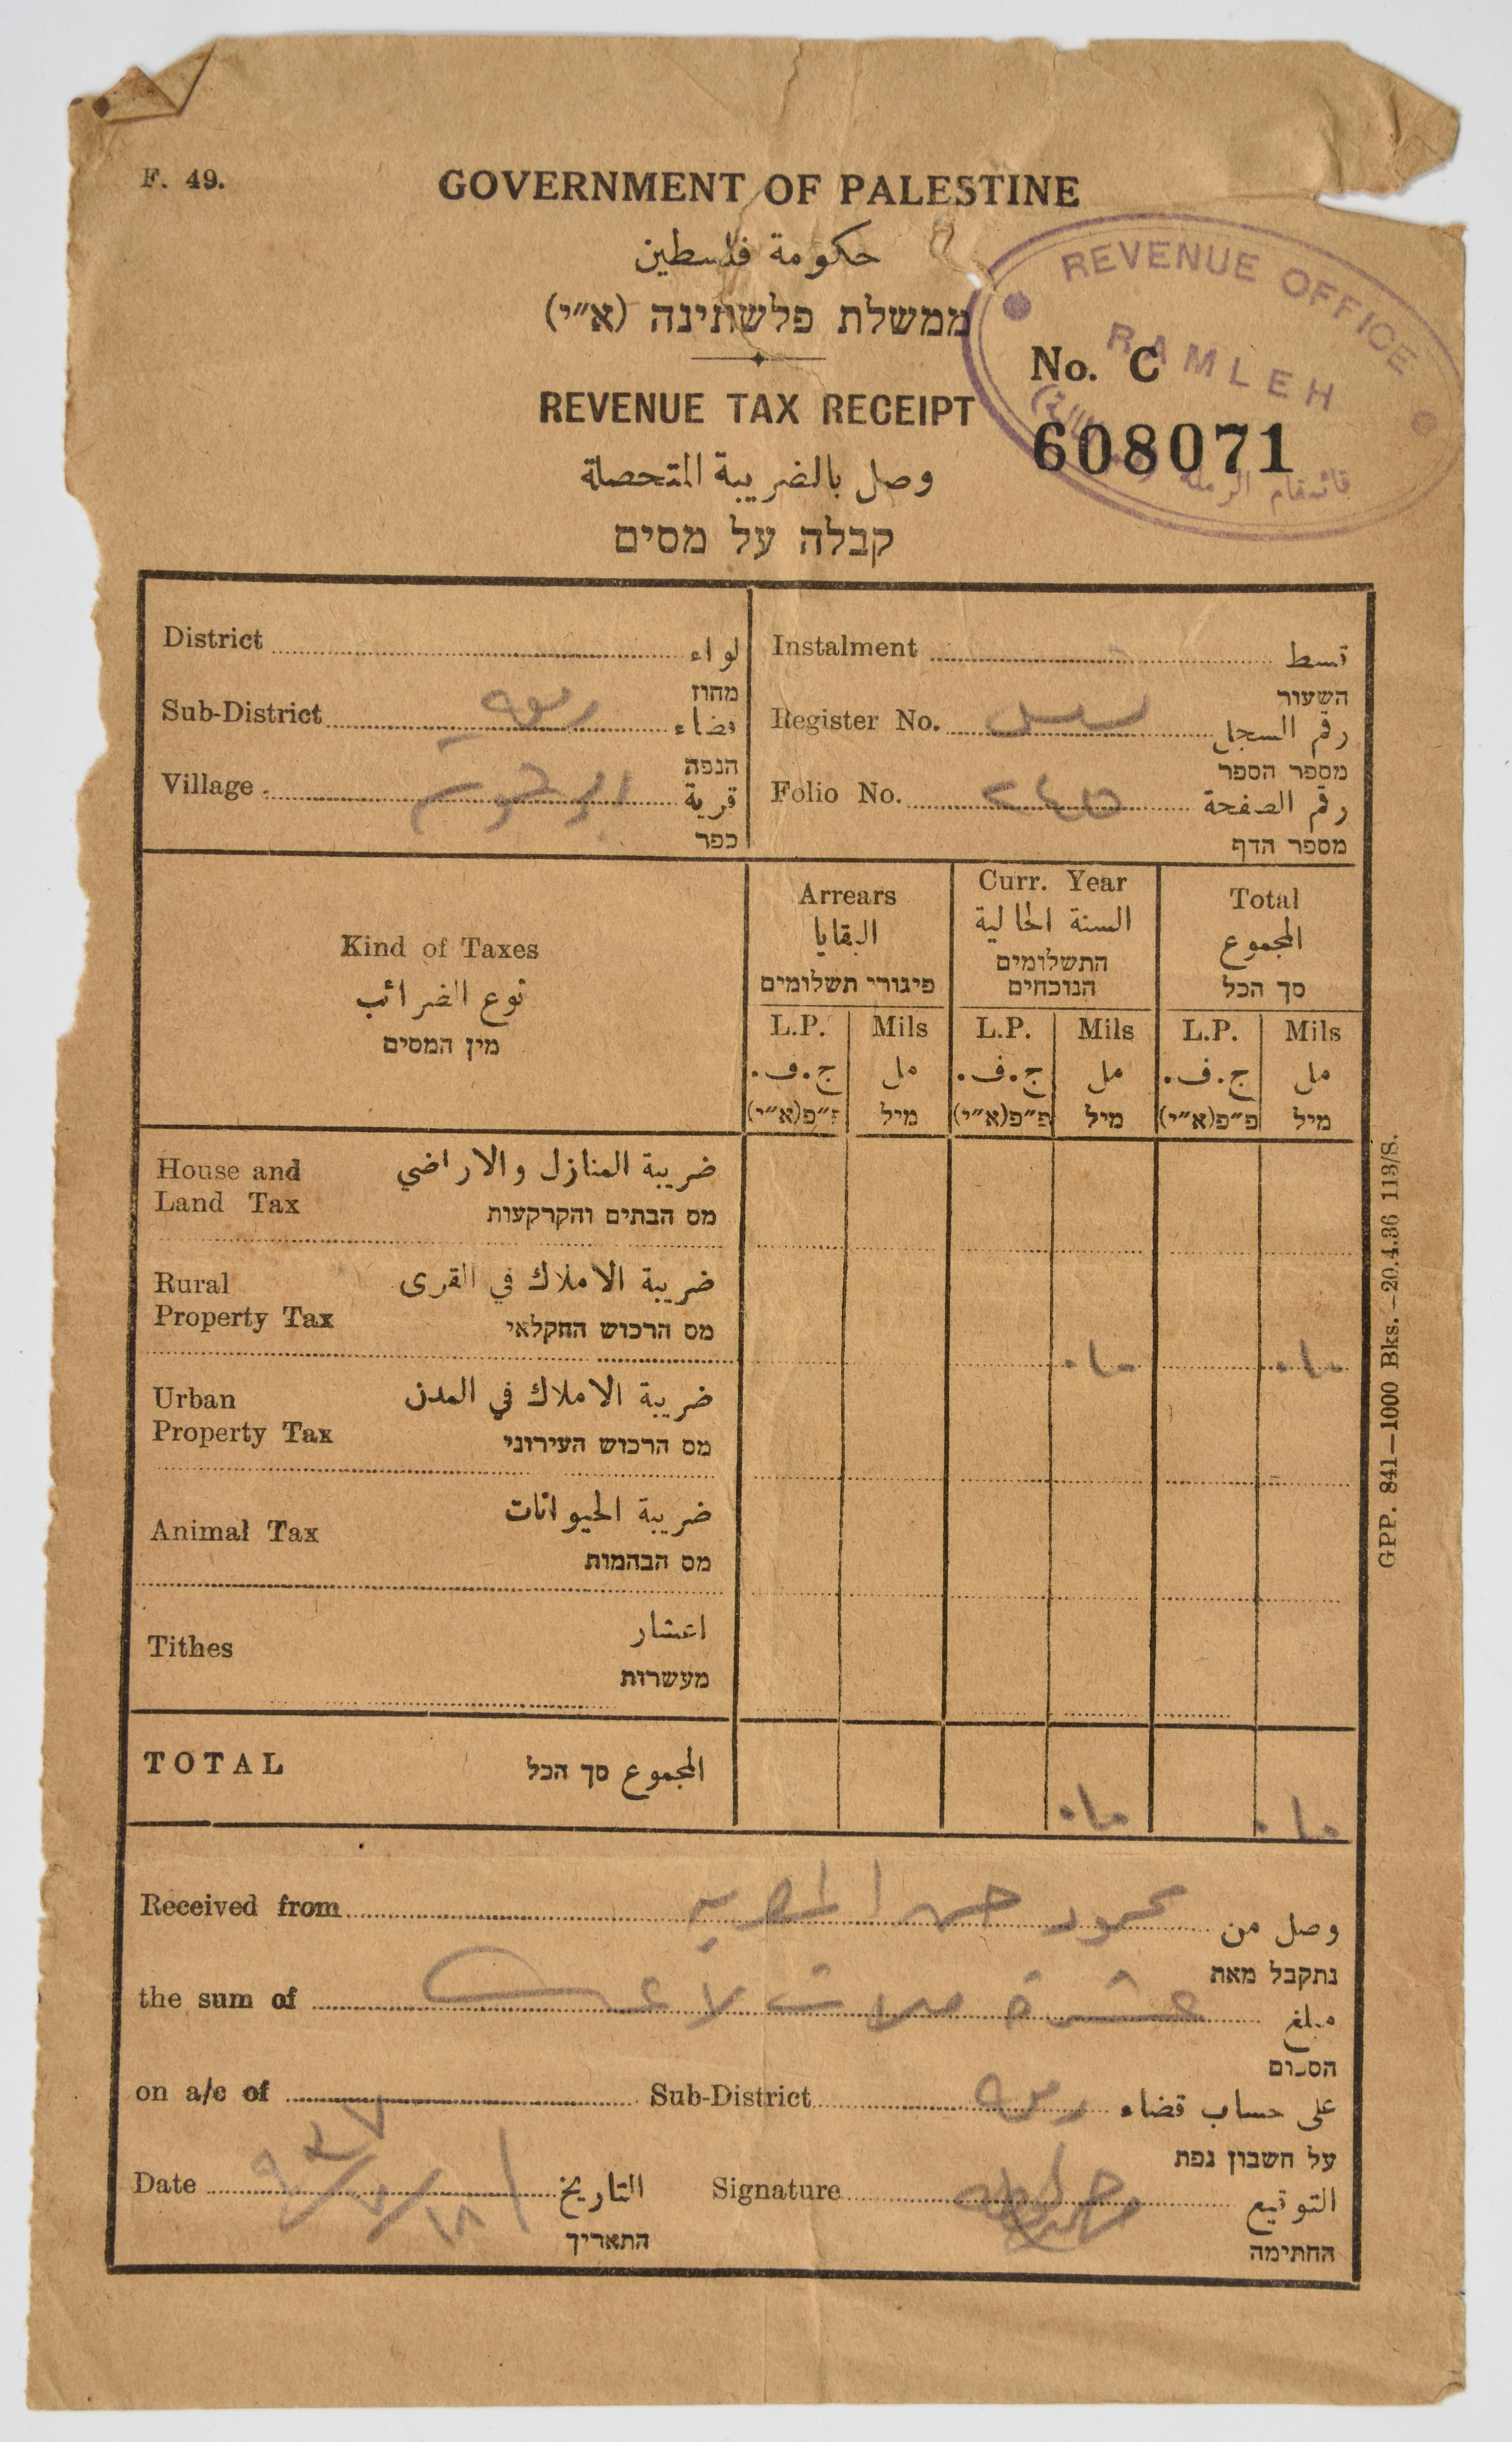 F. 49.
GOVERNMENT OF PALESTINE
حكومة فلسطين
ממשלת פלשתינה (א״י)
REVENUE OFFICE
RAMLEH
قائمقام الرملة
No. C
608071
REVENUE TAX RECEIPT
وصل بالضريبة المتحصلة
קבלה על מסים
District لواء
מחוז
Sub-District رمله قضاء
הנפה
Village قرية
כפר
Instalment قسط
השעור
Register No. رقم السجل
מספר הספר
Folio No. ٢٤٥ رقم الصفحة
מספר הדף
Kind of Taxes
نوع الضرائب
מין המסים
Arrears
البقايا
פיגורי תשלומים
Curr. Year
السنة الحالية
התשלומים
הנוכחים
Total
المجموع
סך הכל
L.P. Mils L.P. Mils L.P. Mils
ج.ف. مل ج.ف. مل ج.ف. مل
פ״פ(א״י) מיל פ״פ(א״י) מיל פ״פ(א״י) מיל
House and ضريبة المنازل والاراضي
Land Tax מס הבתים והקרקעות
Rural ضريبة الاملاك في القرى
Property Tax מס הרכוש החקלאי
٠١٠ ٠١٠
Urban ضريبة الاملاك في المدن
Property Tax מס הרכוש העירוני
Animal Tax ضريبة الحيوانات
מס הבהמות
Tithes اعشار
מעשרות
TOTAL المجموع סך הכל ٠١٠ ٠١٠
Received from محمود حسن وصل من
נתקבל מאת
the sum of عشرة ملات لا غير مبلغ
הסכום
on a/c of Sub-District رمله على حساب قضاء
על חשבון נפת
Date ١٨/٧/٩٣٧ التاريخ
התאריך
Signature التوقيع
החתימה
GPP. 841—1000 Bks.—20.4.36 113/S.